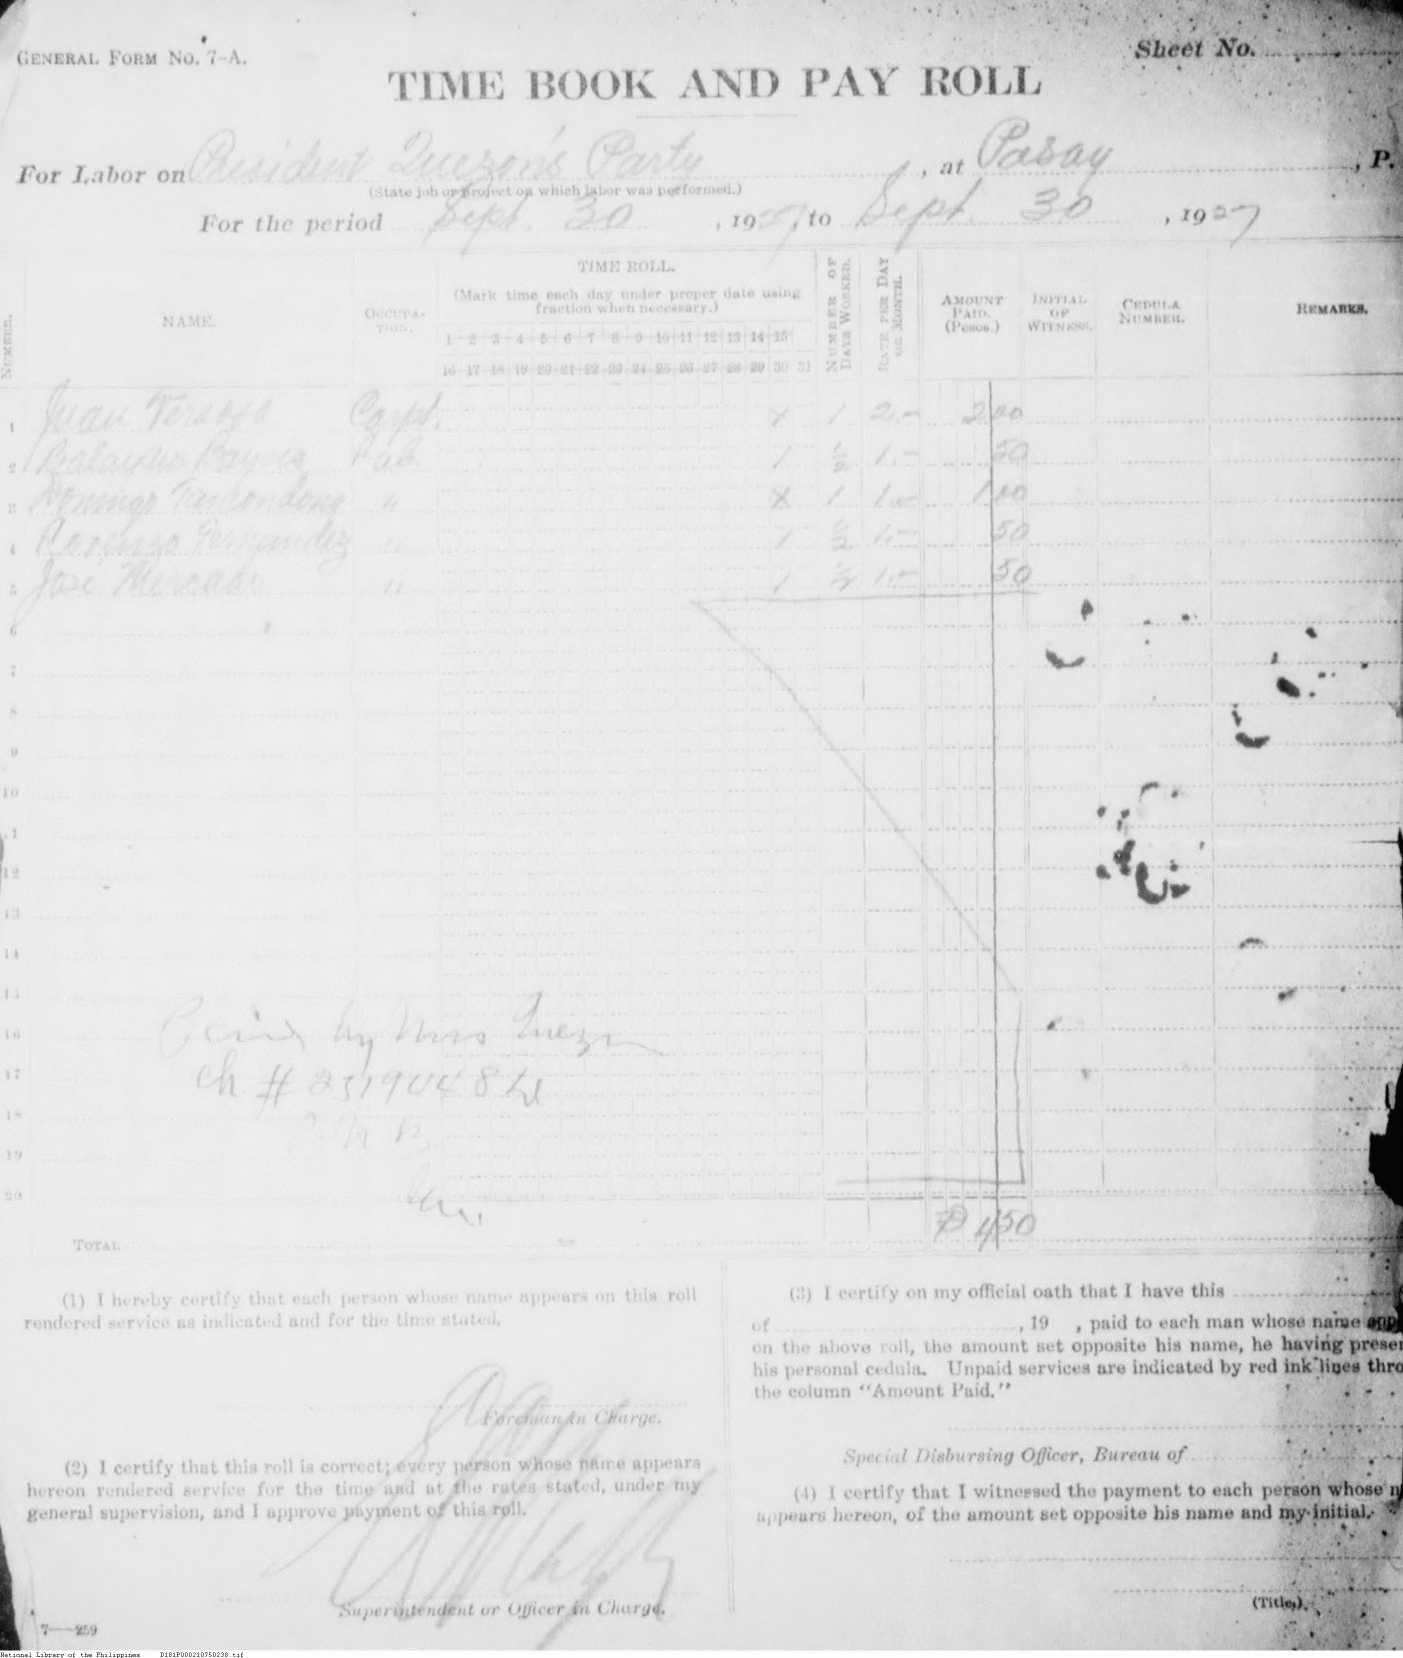 GENERAL FORM NO. 7-A.
Sheet No.
TIME BOOK AND PAY ROLL
For Labor on President Quezon's Party, at Pasay, P.
(State job or project on which labor was performed.)
For the period Sept. 30, 1927, to Sept. 30, 1927
NUMBER.
NAME.
OCCUPATION.
TIME ROLL.
(Mark time each day under proper date using
fraction when necessary.)
1 2 3 4 5 6 7 8 9 10 11 12 13 14 15
16 17 18 19 20 21 22 23 24 25 26 27 28 29 30 31
NUMBER OF DAYS WORKED.
RATE PER DAY OR MONTH.
AMOUNT PAID. (Pesos.)
INITIAL OF WITNESS.
CEDULA NUMBER.
REMARKS.
1 Juan Carpt. x 1 2.- 2 00
2 Lab. / 1/2 1.- 50
3 Domingo " x 1 1.- 1 00
4 Lorenzo Fernandez " / 1/2 1.- 50
5 José Mercado " / 1/2 1.- 50
6
7
8
9
10
11
12
13
14
15
16 by Mrs Quezon
17 Ch # 2319048
18
19
20
TOTAL ₱ 4 50
(1) I hereby certify that each person whose name appears on this roll
rendered service as indicated and for the time stated.
Foreman in Charge.
(2) I certify that this roll is correct; every person whose name appears
hereon rendered service for the time and at the rates stated, under my
general supervision, and I approve payment of this roll.
Superintendent or Officer in Charge.
7—259
(3) I certify on my official oath that I have this
of , 19 , paid to each man whose name app
on the above roll, the amount set opposite his name, he having presen
his personal cedula. Unpaid services are indicated by red ink lines thro
the column "Amount Paid."
Special Disbursing Officer, Bureau of
(4) I certify that I witnessed the payment to each person whose n
appears hereon, of the amount set opposite his name and my initial.
(Title.)
National Library of the Philippines D181P000210750238.tif